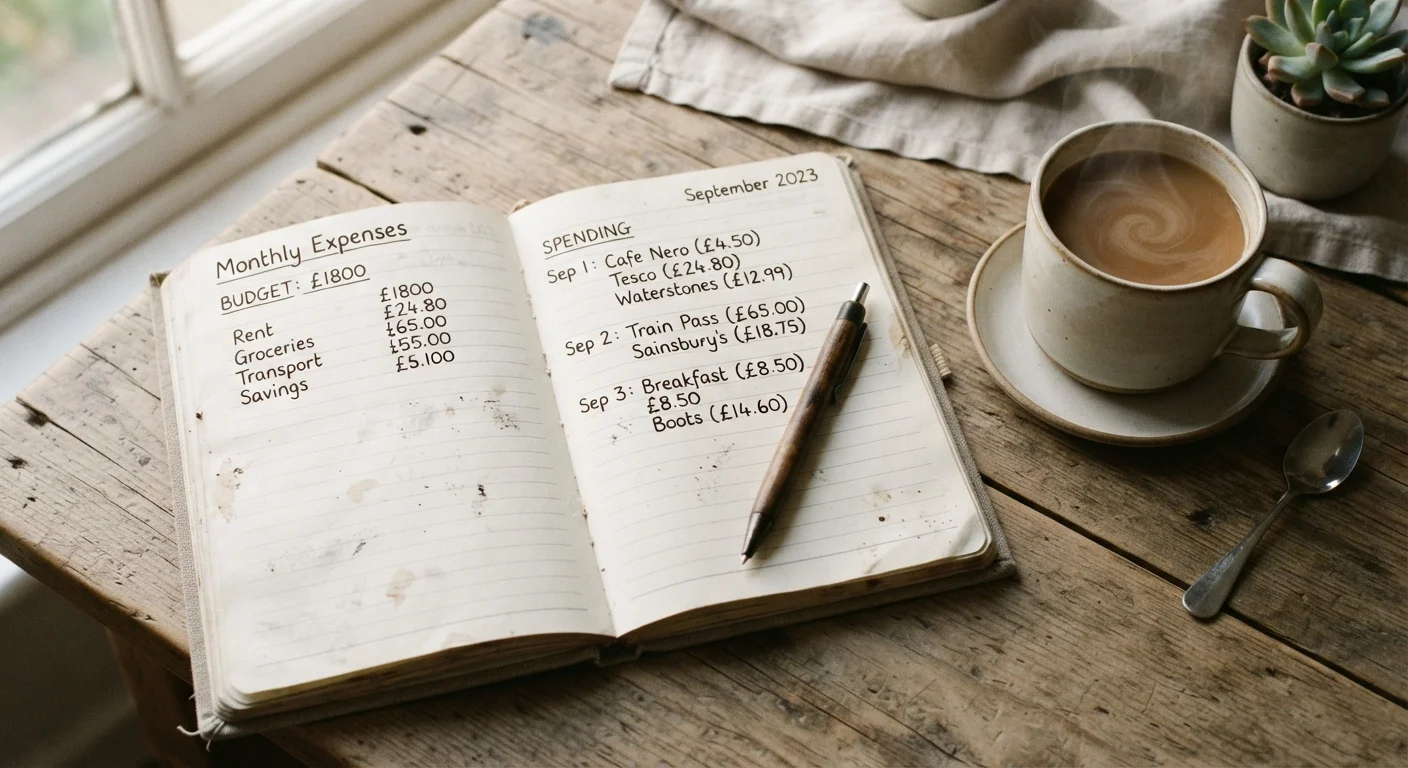 Monthly Expenses
BUDGET: £1800
£1800
Rent £24.80
Groceries £65.00
Transport £55.00
Savings £5.100
September 2023
SPENDING
Sep 1: Cafe Nero (£4.50)
Tesco (£24.80)
Waterstones (£12.99)
Sep 2: Train Pass (£65.00)
Sainsbury's (£18.75)
Sep 3: Breakfast (£8.50)
£8.50
Boots (£14.60)